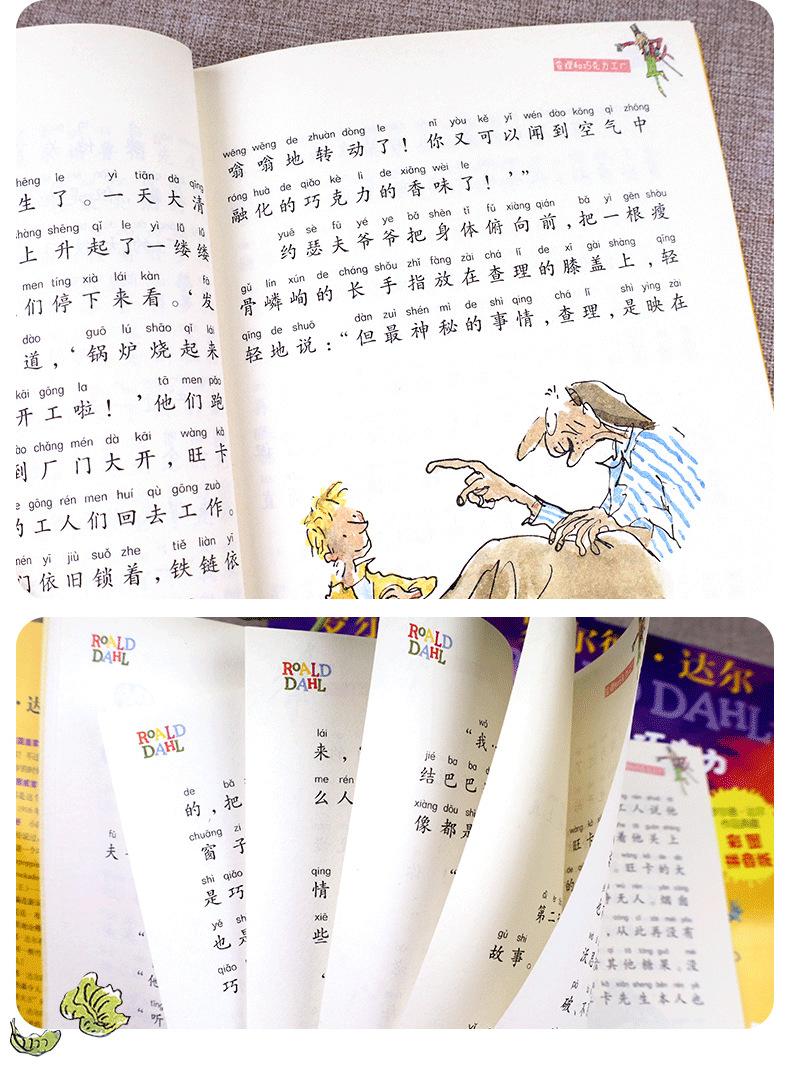 查理和巧克力工厂
wēng wēng de zhuàn dòng le nǐ yòu kě yǐ wén dào kōng qì zhōng
嗡嗡地转动了！你又可以闻到空气中
róng huà de qiǎo kè lì de xiāng wèi le
融化的巧克力的香味了！’”
yuē sè fū yé ye bǎ shēn tǐ fǔ xiàng qián bǎ yì gēn shòu
约瑟夫爷爷把身体俯向前，把一根瘦
gǔ lín xún de cháng shǒu zhǐ fàng zài chá lǐ de xī gài shàng qīng
骨嶙峋的长手指放在查理的膝盖上，轻
qīng de shuō dàn zuì shén mì de shì qing chá lǐ shì yìng zài
轻地说：“但最神秘的事情，查理，是映在
shēng le yì tiān dà qīng
生了。一天大清
shàng shēng qǐ le yì lǚ lǚ
上升起了一缕缕
men tíng xià lái kàn fā
们停下来看。‘发
dào guō lú shāo qǐ lái
道，‘锅炉烧起来
kāi gōng la tā men pǎo
开工啦！’他们跑
dào chǎng mén dà kāi wàng kǎ
到厂门大开，旺卡
de gōng rén men huí qù gōng zuò
的工人们回去工作。
mén yī jiù suǒ zhe tiě liàn yī
门依旧锁着，铁链依
ROALD
DAHL
ROALD
DAHL
ROALD
DAHL
ROALD
DAHL
de bǎ
的，把
chuāng zi
窗子
shì qiǎo
是巧
yě shì
也是
qiǎo
巧
fū
夫
tīng
“听
lái
来，“
me rén
么人
qíng
情
xiē
些
wǒ
“我…
jié ba ba
结巴巴
xiàng dōu shì
像都是
gù shi
故事。
第二
旺卡
工人说他
着他头上
旺卡的大
无人。烟囱
，从此再没有
其他糖果。没
卡先生本人也
·达尔
DAHL
彩图
拼音版